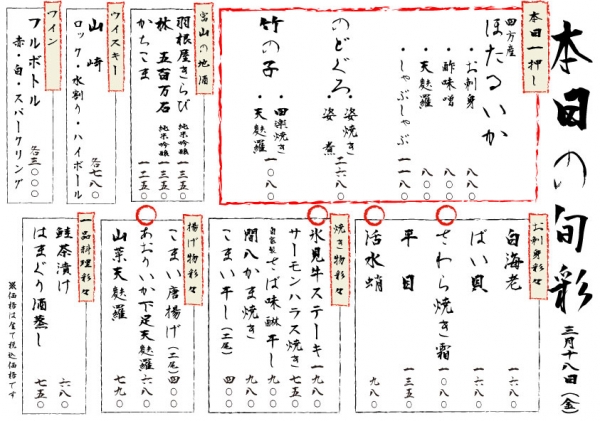 本日の旬彩
三月十八日(金)
本日一押し
四方産
ほたるいか
・お刺身 八八〇
・酢味噌 八〇〇
・天麩羅 八〇〇
・しゃぶしゃぶ 一一八〇
のどぐろ・姿焼き
・姿煮 二六八〇
竹の子・田楽焼き
・天麩羅 一〇八〇
富山の地酒
羽根屋きらび 純米吟醸 一三五〇
林 五百万石 純米吟醸 一三五〇
かちこま 一二五〇
ウイスキー
山崎 各七八〇
ロック・水割り・ハイボール
ワイン
フルボトル 各三〇〇〇
赤・白・スパークリング
お刺身彩々
白海老 一六八〇
ばい貝 一六八〇
さわら焼き霜 一〇八〇
平目 一三五〇
活水蛸 九八〇
焼き物彩々
氷見牛ステーキ 一九八〇
サーモンハラス焼き 七五〇
自家製さば味醂干し 九八〇
間八かま焼き 九八〇
こまい干し(二尾) 四〇〇
揚げ物彩々
こまい唐揚げ(二尾) 四〇〇
あおりいか下足天麩羅 六八〇
山菜天麩羅 七九〇
一品料理彩々
鮭茶漬け 六八〇
はまぐり酒蒸し 七五〇
※価格は全て税込価格です